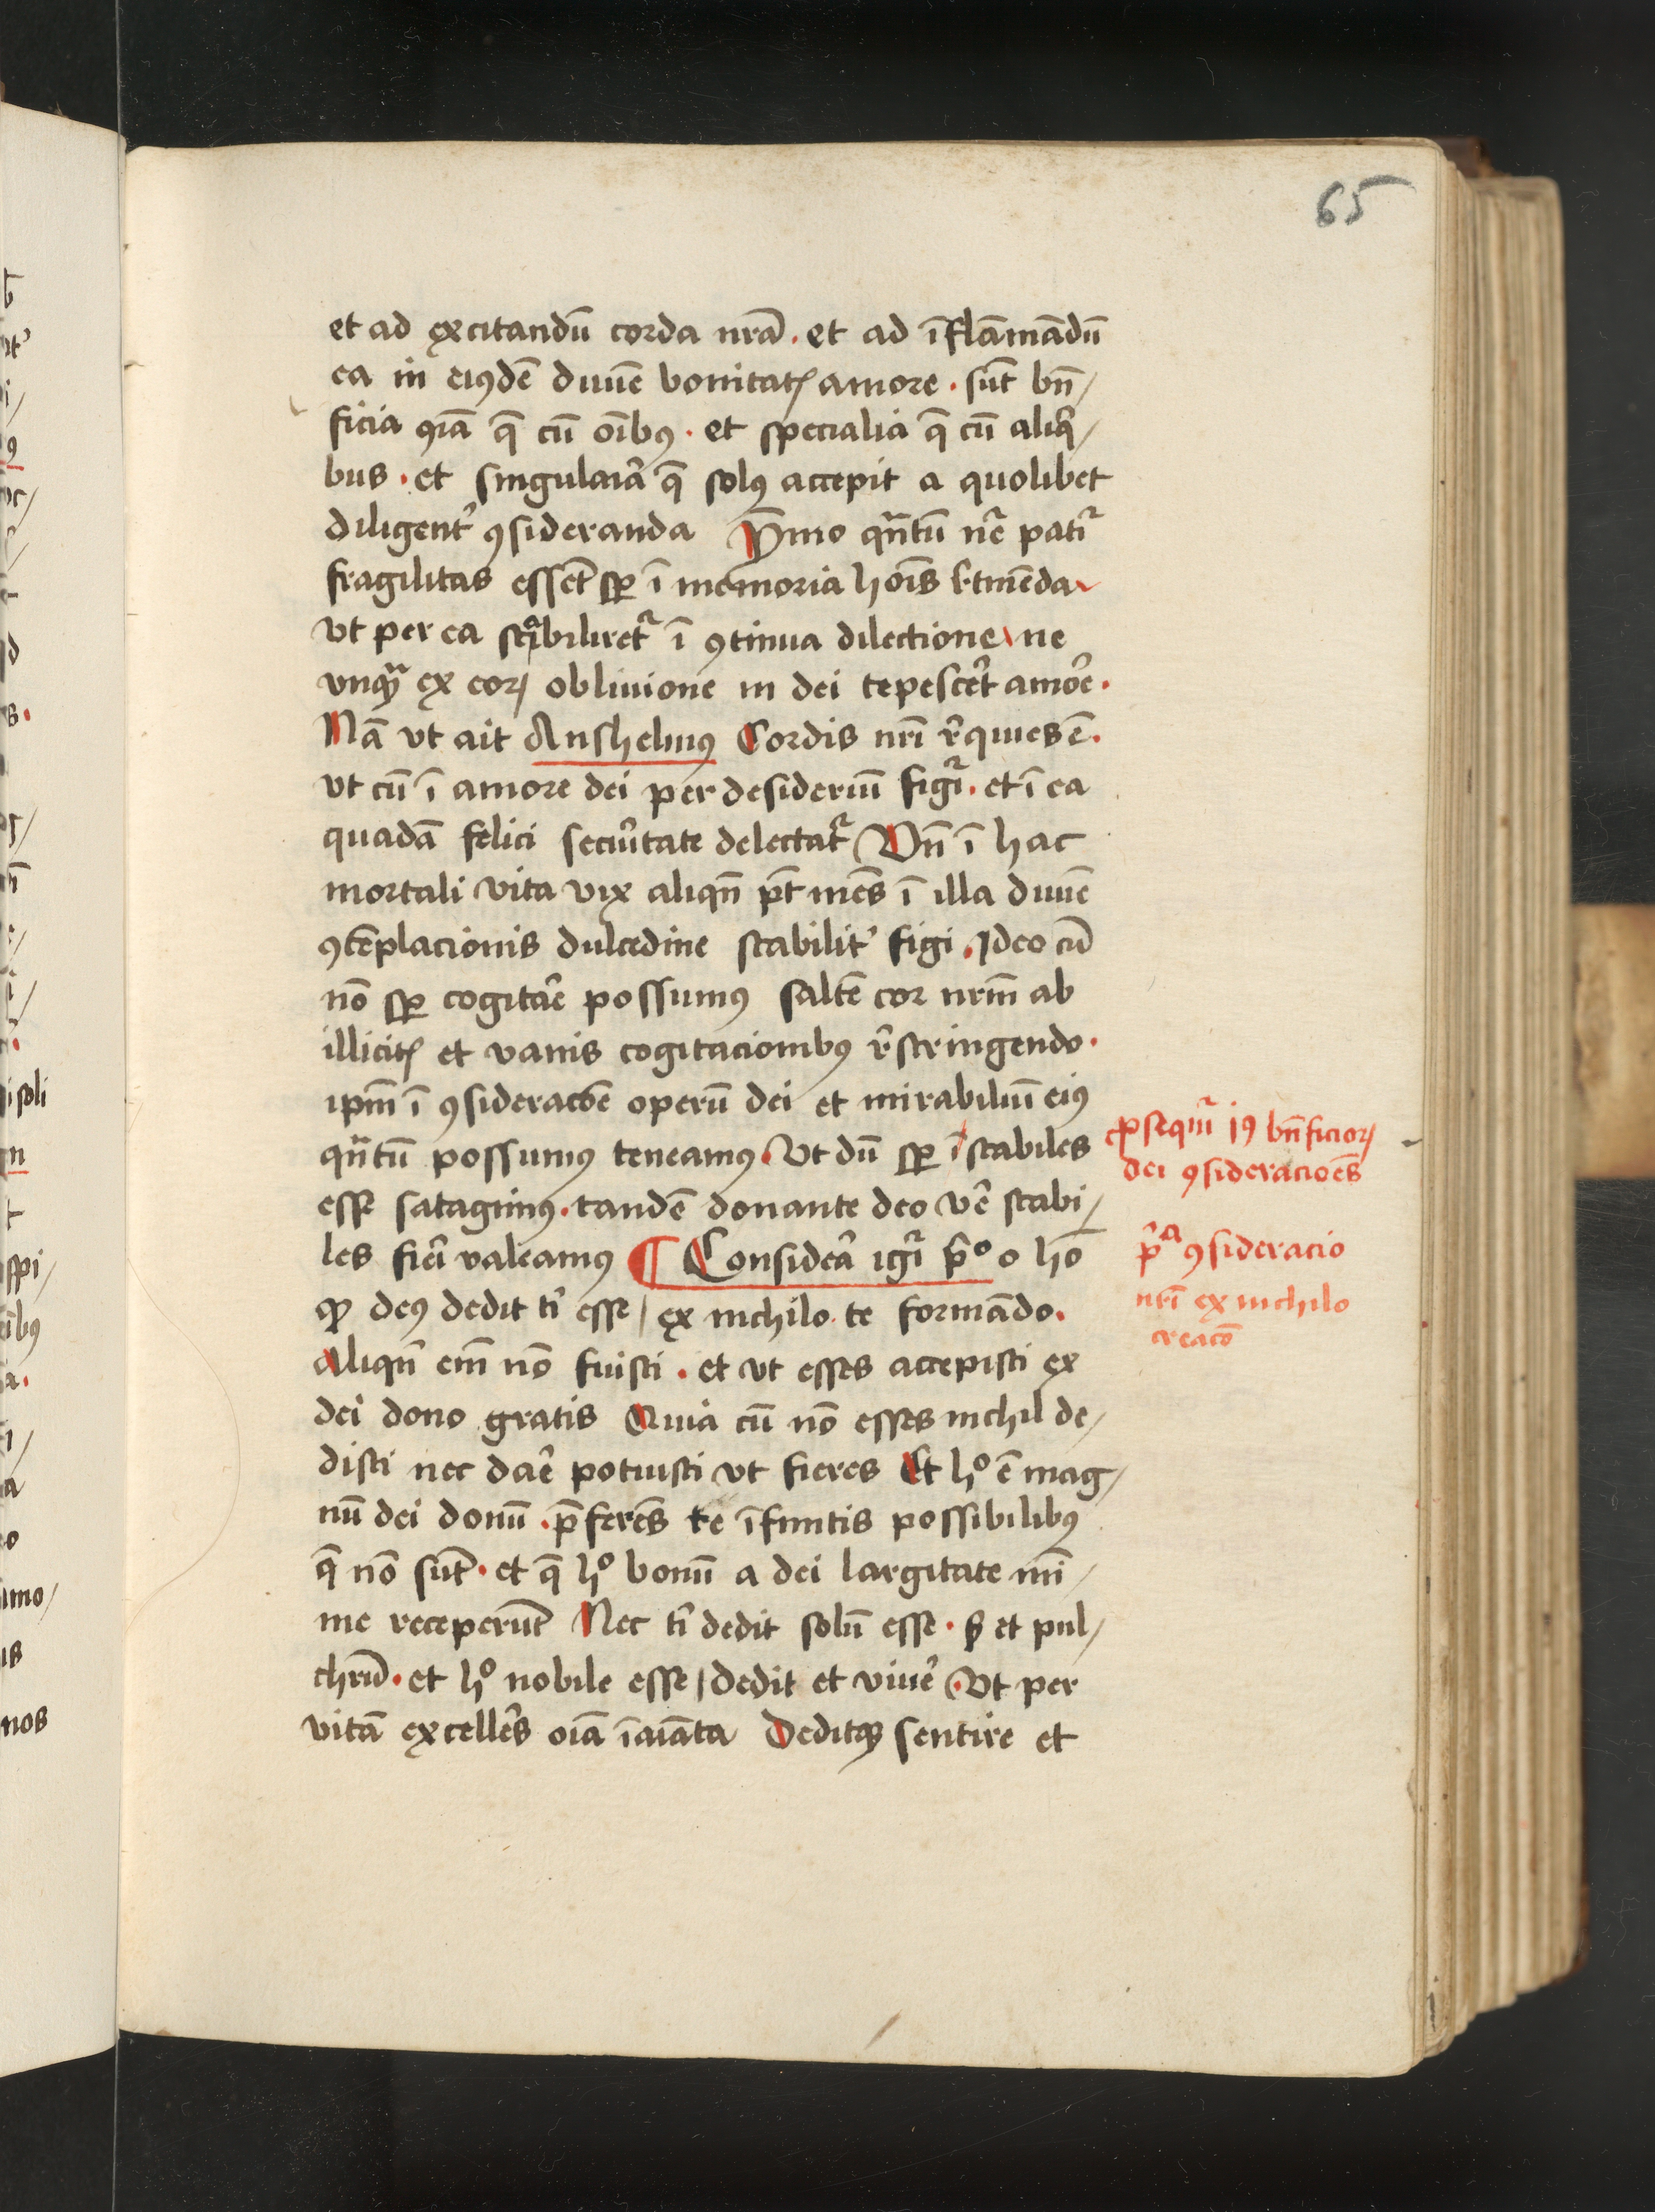 65
et ad excitandū corda nrā . et ad īflāmādū
ea in eiꝯdē diuīe bonitatꝭ amore . sūt bn̄/
ficia ꝯiā q̄ cū oībꝯ . et specialia q̄ cū aliq̄/
bus . et singulaīa q̄ solꝯ accepit a quolibet
diligent͛ ꝯsideranda Ymo qn̄tū nr̄e patir̄
fragilitas essēt sꝑ ī memoria hoīs rͤtinēda
vt per ea stabiliretᷣ ī ꝯtinua dilectione ne
vnqᷓ ex eoꝝ obliuione in dei tepesceret̄ amor̄e .
Nā vt ait Anshelmꝯ Cordis nrī rͤquies ē .
vt cū ī amore dei per desideriū figiᷣ . et ī ea
quadā felici secur̄itate delectatᷣ Vn̄ ī hac
mortali vita vix aliqn̄ pt̄ mēs ī illa diuīe
ꝯtēplacionis dulcedine stabilit͛ figi . Ideo cū
nō sꝑ cogitar̄e possumꝯ saltē cor nrm̄ ab
illicitꝭ et vanis cogitacionibꝯ rͤstringendo .
ipm̄ ī ꝯsideracōe operū dei et mirabiliū eiꝯ
qn̄tū possumꝯ teneamꝯ . Vt dū sꝑ īstabiles
esse satagimꝯ . tandē donante deo ver̄e stabi/
les fier̄i valeamꝯ ¶ Considera͛ igiᷣ p̄º o hō
ꝙ deꝯ dedit tⁱ esse / ex nichilo te formādo .
Aliqn̄ em̄ nō fuisti . et vt esses accepisti ex
dei dono gratis Quia cū nō esses nichil de/
disti nec dar̄e potuisti vt fieres Et hº ē mag/
nū dei donū . p̄ferēs te īfinitis possibilibꝯ
q̄ nō sūt . et q̄ hº bonū a dei largitate mī/
me receperūt Nec tⁱ dedit solū esse . sꝫ et pul/
chrū . et hº nobile esse / dedit et viuer̄e . Vt per
vitā excellēs oīa īaīata Deditqꝫ sentire et
ꝓsequiᷣ iꝯ bn̄ficioꝝ
dei ꝯsideracioēs
p̄ᵃ ꝯsideracio
nrī ex nichilo
creacō